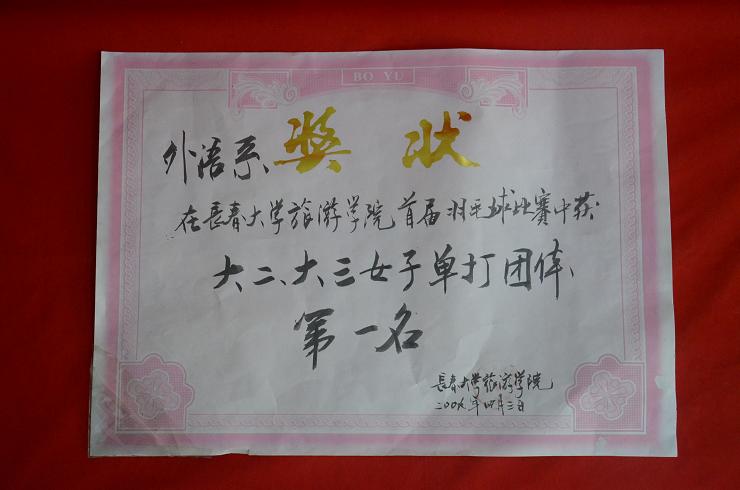 BO YU
奖 状
外语系
在長春大学旅游学院首届羽毛球比赛中获
大二、大三女子单打团体
第一名
長春大学旅游学院